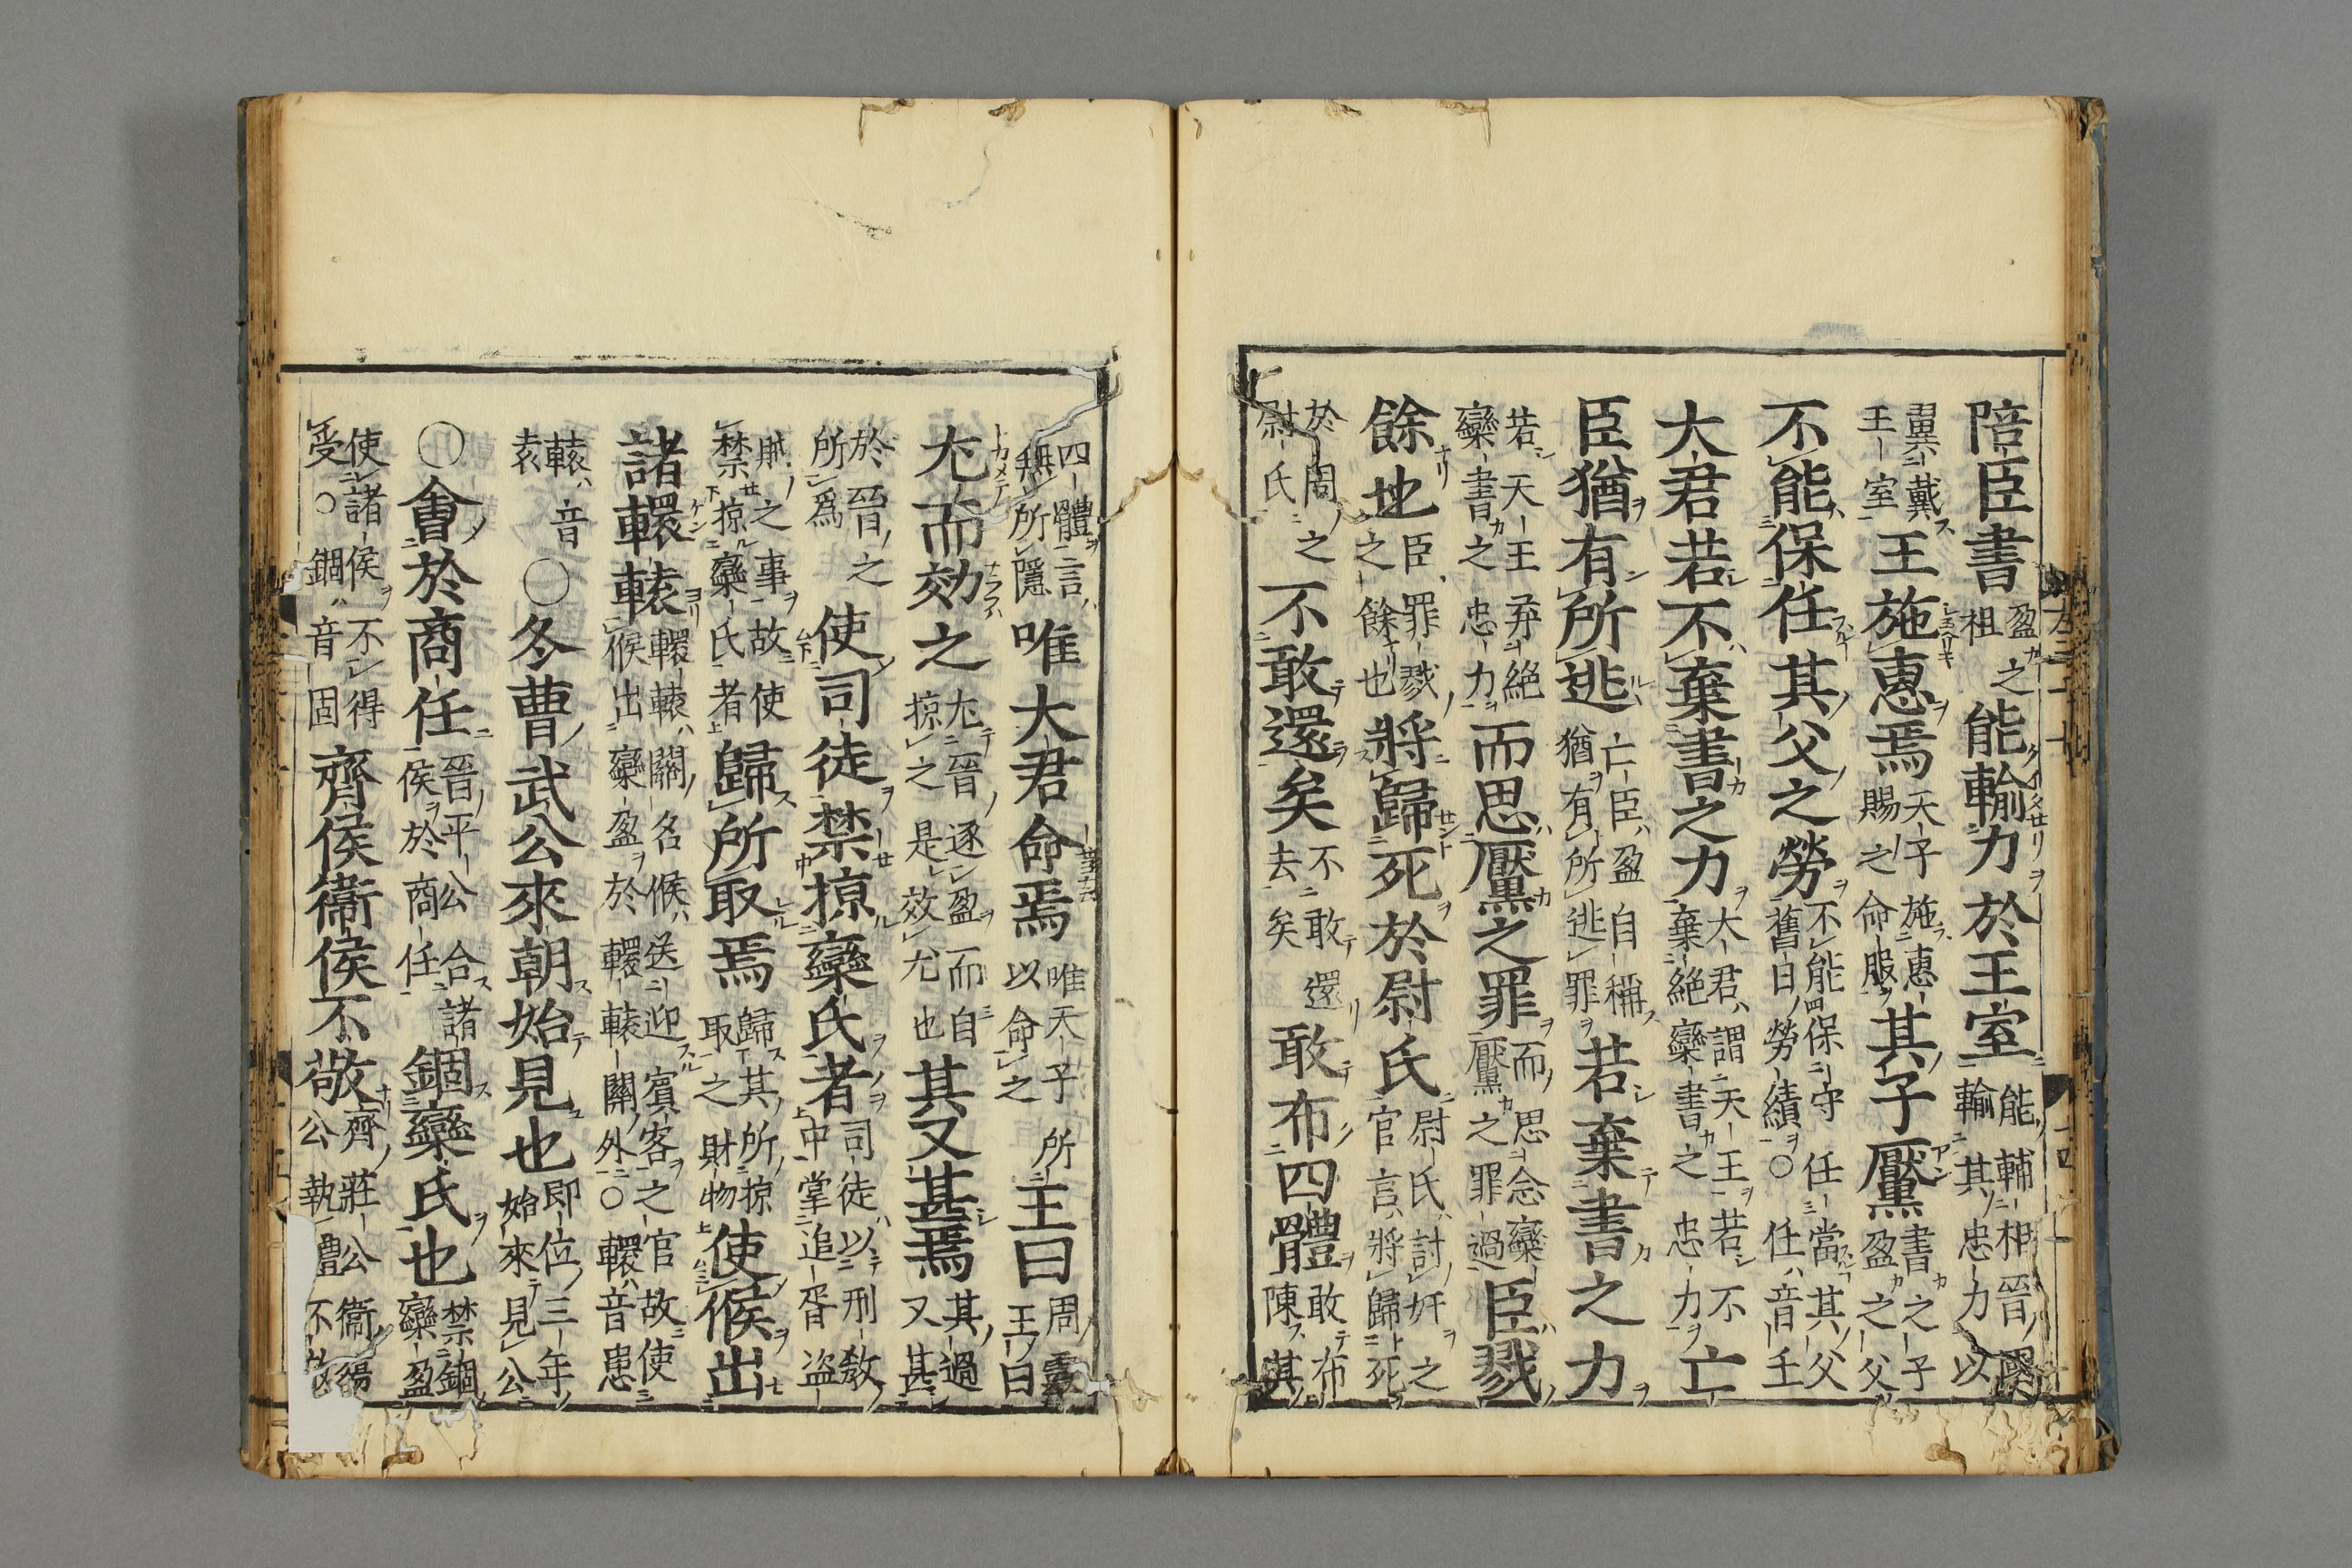 陪臣書盈之祖能輸力於王室能輔相晉國輸其忠力以
翼戴王室王施惠焉天子施惠賜之命服其子黶書之子盈之父
不能保任其父之勞不能保守任當其父舊日勞績○任音壬
大君若不棄書之力大君謂天王若不棄絶欒書之忠力亡
臣猶有所逃亡臣盈自稱猶有所逃罪若棄書之力
若天王弃絶欒書之忠力而思黶之罪而思念欒黶之罪過臣戮
餘也臣罪戮之餘也將歸死於尉氏尉氏討奸之官言將歸死
於周之尉氏不敢還矣不敢還去矣敢布四體敢布陳其
四體言無所隱唯大君命焉唯天子所以命之王曰周靈王曰
尤而効之尤晉逐盈而自掠之是效尤也其又甚焉其過又甚
於晉之所爲使司徒禁掠欒氏者司徒以刑敎中掌追胥盗
賊之事故使禁掠欒氏者歸所取焉歸其所掠取之財物使候出
諸轘轅轘轅關名候送迎賓客之官故使候出欒盈於轘轅關外○轘音患
轅音袁○冬曹武公來朝始見也即位三年始來見公
○會於商任晉平公合諸侯於商任錮欒氏也禁錮欒盈
使諸侯不得受○錮音固齊侯衞侯不敬齊莊公衞殤公執禮不